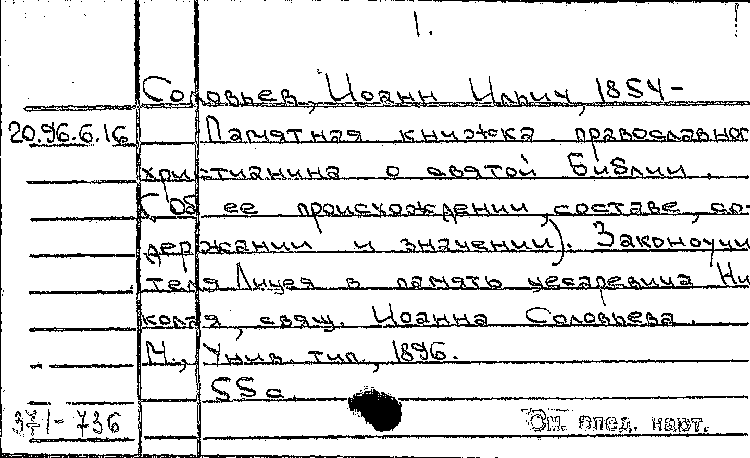 1.
Соловьев, Иоанн Ильич, 1854-
20.96.6.16 Памятная книжка православного
христианина о святой Библии.
(Об ее происхождении, составе, со-
держании и значении). Законоучи-
теля Лицея в память цесаревича Ни-
колая, свящ. Иоанна Соловьева.
М., Унив. тип., 1896.
55 с.
37/- 736 См. след. карт.